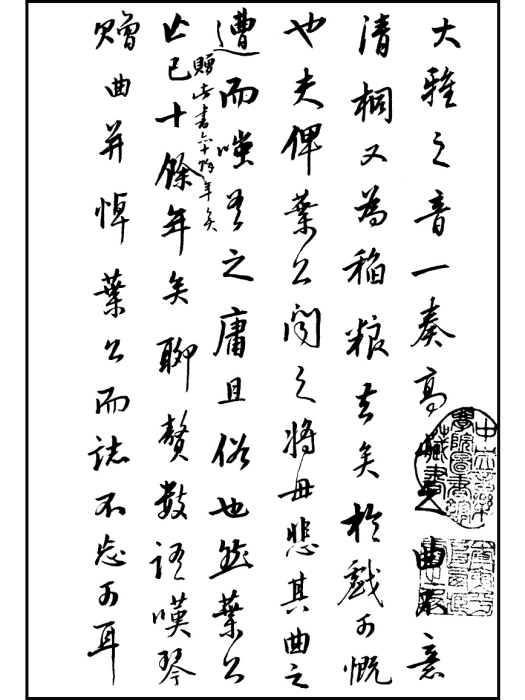 大雅之音一奏高之曲意
清桐又為稻粮去矣於戲可慨
也夫俾葉公聞之將毋悲其曲之
遭而嗤吾之庸且俗也然葉公
贈此書六十餘年矣
亡已十餘年矣聊贅數語嘆琴
贈曲并悼葉公而誌不忘可耳
中央音樂學院圖書館藏書